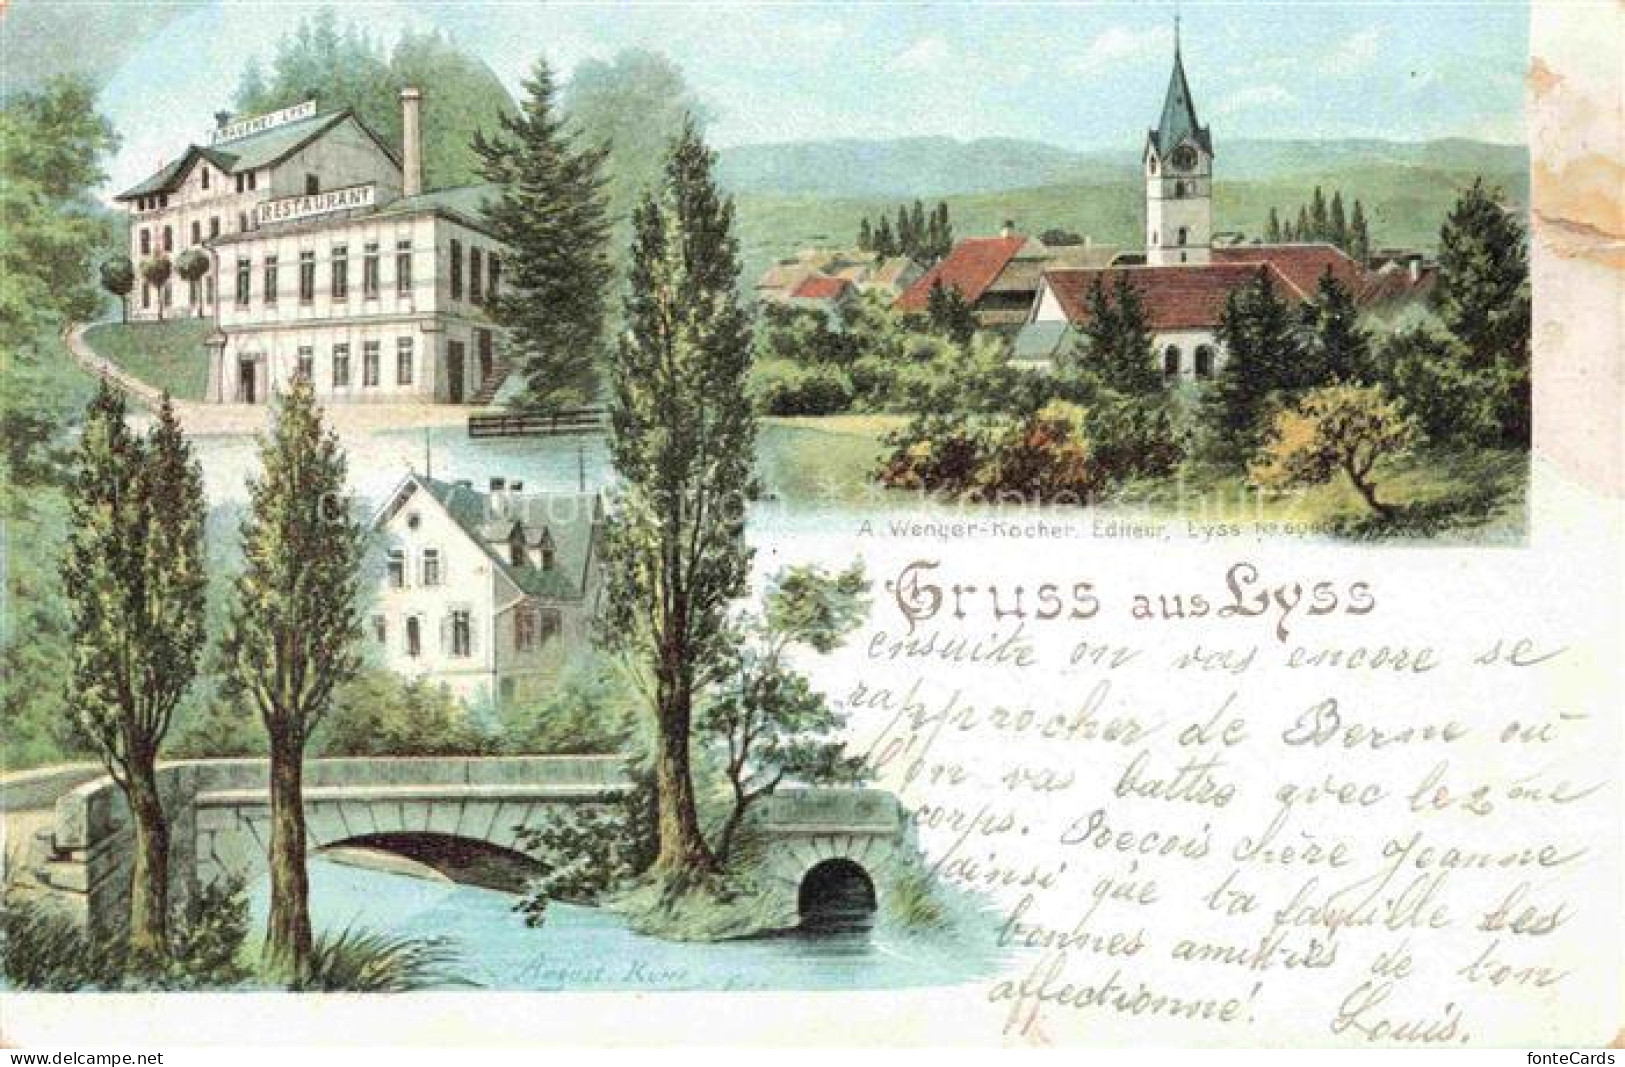 BRAUEREI LYSS
RESTAURANT
A. Wenger-Kocher, Editeur, Lyss No.
Gruss aus Lyss
ensuite on vas encore se
rapprocher de Berne où
l'on vas battre avec le 2me
corps. Reçois chère Jeanne
ainsi que ta famille les
bonnes amitiés de ton
affectionné!
Louis.
August
delcampe.net
fonteCards